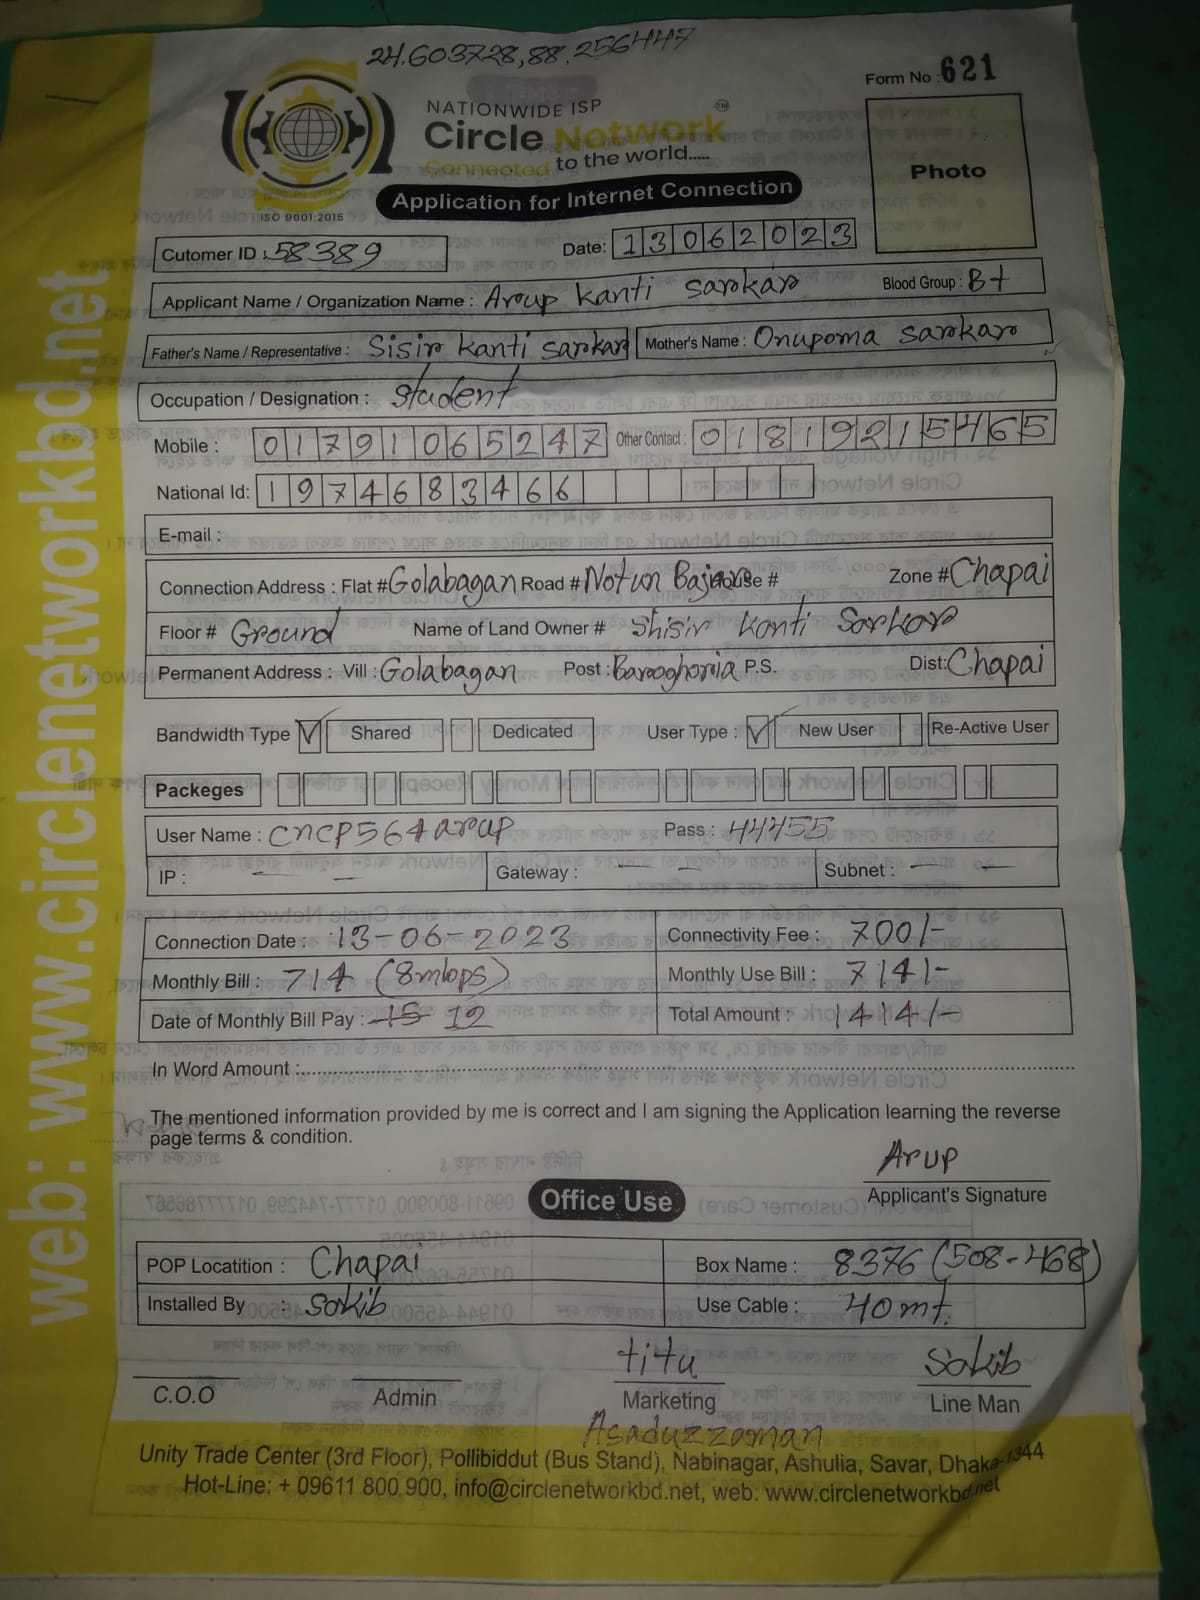 24.603728,88.256447
Form No : 621
NATIONWIDE ISP
Circle Network ™
Connected to the world.....
Photo
Application for Internet Connection
ISO 9001:2015
Cutomer ID : 58389 Date: 13062023
Applicant Name / Organization Name : Aroup kanti sarkar Blood Group : B+
Father's Name / Representative : Sisir kanti sarkar Mother's Name : Onupoma sarkar
Occupation / Designation : student
Mobile : 01791065247 Other Contact : 01819215465
National Id: 1974683466
E-mail :
Connection Address : Flat # Golabagan Road # Notun Bajar House # Zone # Chapai
Floor # Ground Name of Land Owner # Shisir Kanti Sarkar
Permanent Address : Vill : Golabagan Post : Baroghoria P.S. Dist: Chapai
Bandwidth Type Shared Dedicated User Type : New User Re-Active User
Packeges
User Name : cncp564arup Pass : 44455
IP : - - Gateway : - - Subnet : - -
Connection Date : 13-06-2023 Connectivity Fee : 700/-
Monthly Bill : 714 (8mbps) Monthly Use Bill : 714/-
Date of Monthly Bill Pay : 15 12 Total Amount : 1414/-
In Word Amount :
The mentioned information provided by me is correct and I am signing the Application learning the reverse
page terms & condition.
Arup
Applicant's Signature
Office Use
POP Locatition : Chapai Box Name : 8376 (508-468)
Installed By : Sakib Use Cable : 40mt.
titu Sakib
C.O.O Admin Marketing Line Man
Asaduzzaman
Unity Trade Center (3rd Floor), Pollibiddut (Bus Stand), Nabinagar, Ashulia, Savar, Dhaka-1344
Hot-Line: + 09611 800 900, info@circlenetworkbd.net, web: www.circlenetworkbd.net
web: www.circlenetworkbd.net